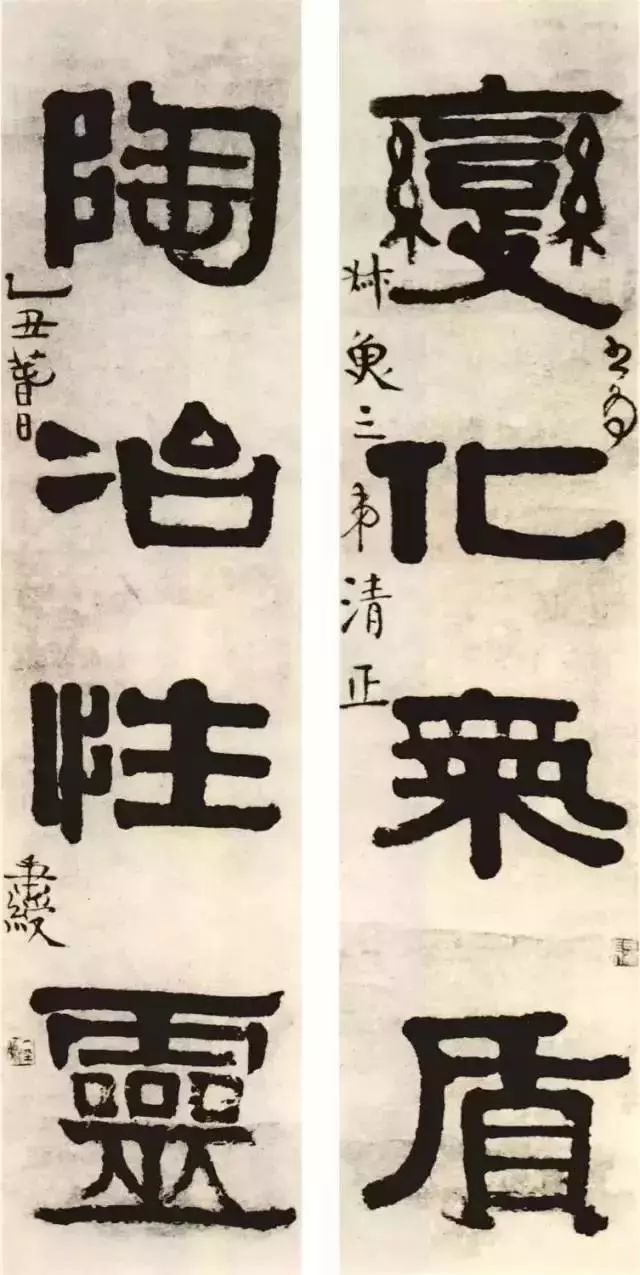 變化氣質
書為
三弟清正
陶冶性靈
乙丑春日
秉綬